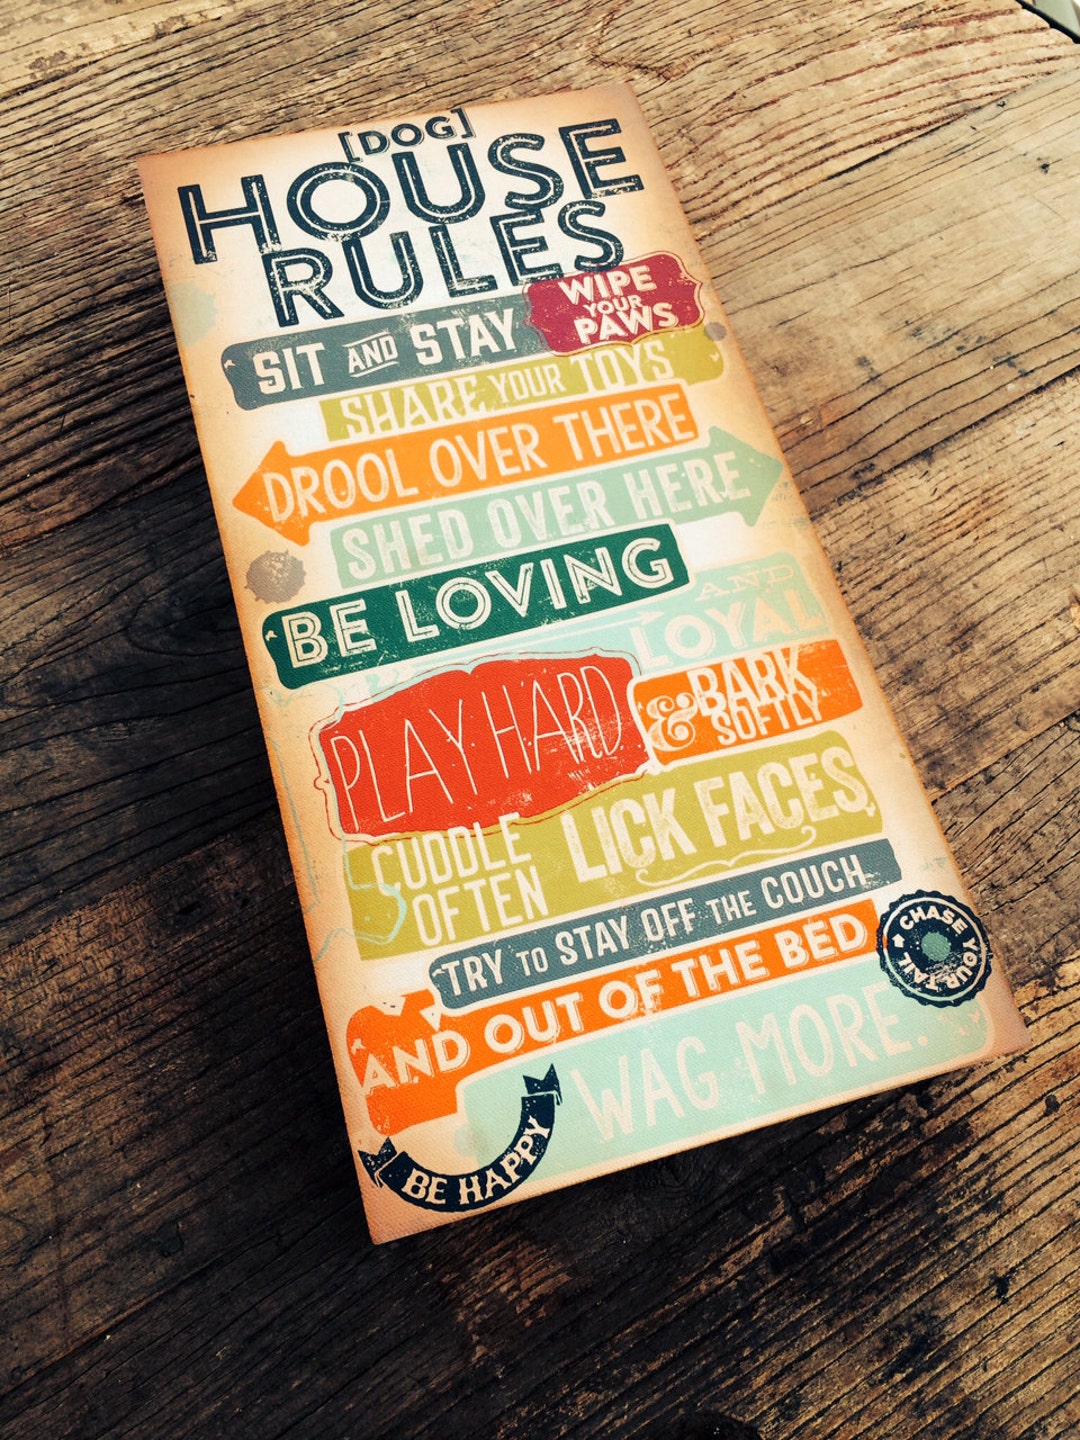 [DOG]
HOUSE
RULES
SIT AND STAY
WIPE
YOUR
PAWS
SHARE YOUR TOYS
DROOL OVER THERE
SHED OVER HERE
BE LOVING
AND
LOYAL
PLAY HARD
& BARK
SOFTLY
CUDDLE
OFTEN
LICK FACES
TRY TO STAY OFF THE COUCH
AND OUT OF THE BED
CHASE YOUR TAIL
WAG MORE.
BE HAPPY